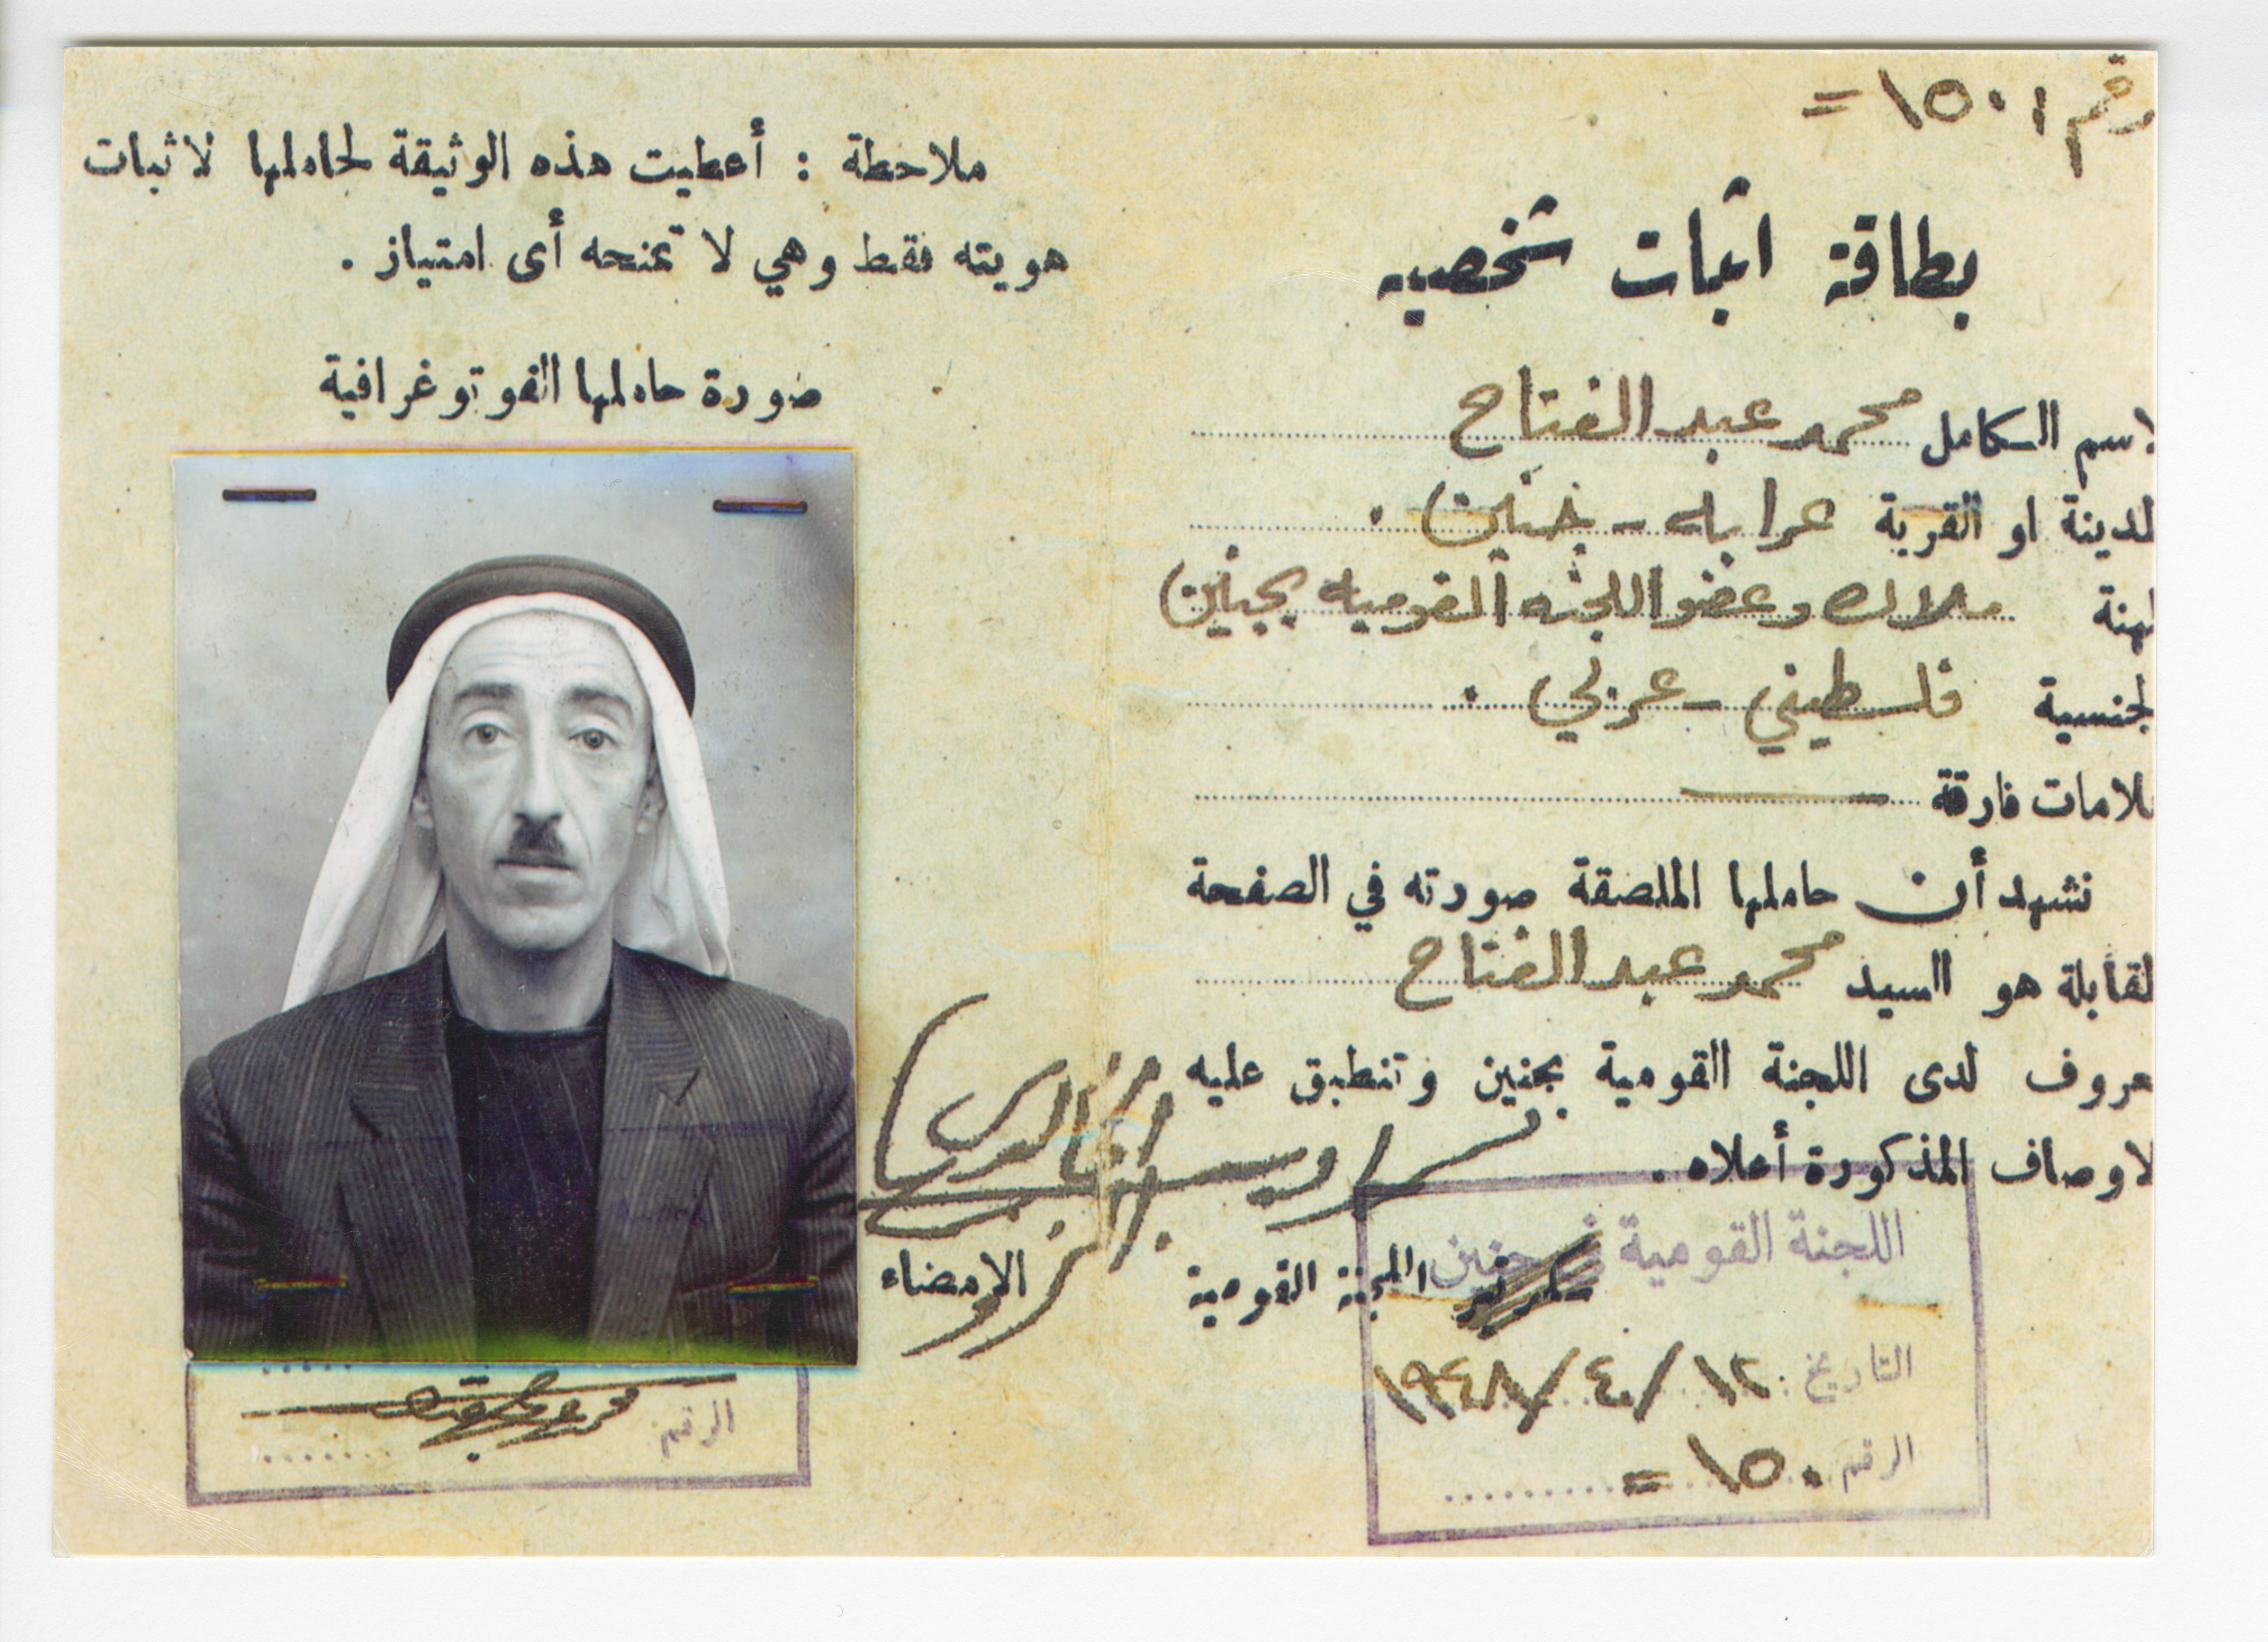 رقم ١٥٠١ =
بطاقة اثبات شخصيه
لاسم الكامل محمد عبد الفتاح
لمدينة او القرية عرابه - جنين .
لمهنة ملاك وعضو اللجنه القوميه بجنين
لجنسية فلسطيني - عربي .
علامات فارقة
نشهد أن حاملها الملصقة صورته في الصفحة
لمقابلة هو السيد محمد عبد الفتاح
معروف لدى اللجنة القومية بجنين وتنطبق عليه
لاوصاف المذكورة أعلاه .
سكرتير اللجنة القومية
اللجنة القومية جنين
التاريخ ١٢ / ٤ / ١٩٤٨
الرقم ١٥٠ =
ملاحظة : أعطيت هذه الوثيقة لحاملها لاثبات
هويته فقط وهي لا تمنحه أى امتياز .
صورة حاملها الفوتوغرافية
الامضاء
الرقم